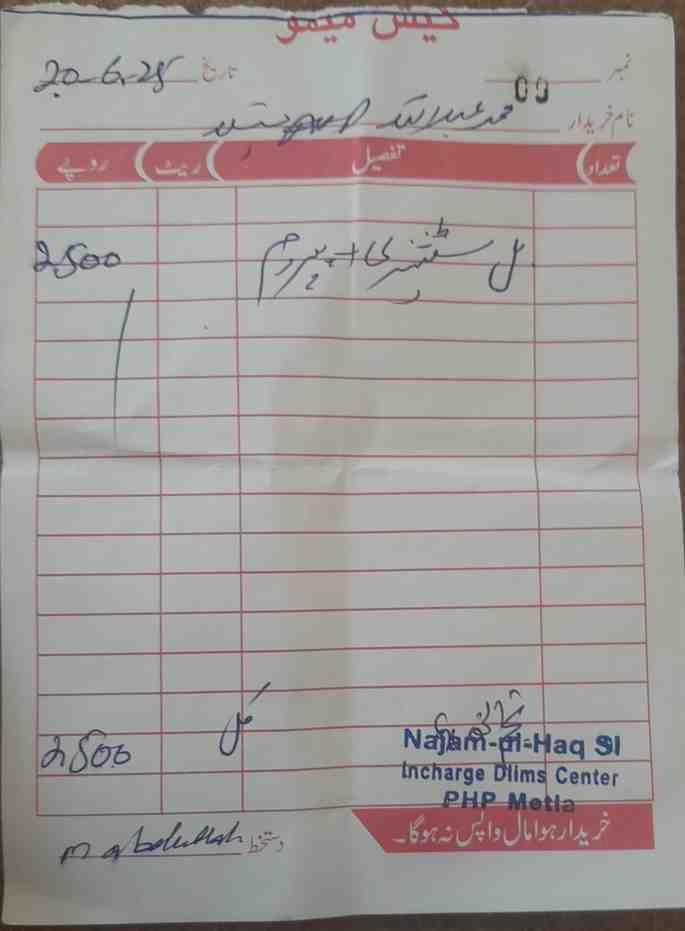 کیش میمو
نمبر 00 تاریخ 20-6-25
نام خریدار محمد عبداللہ
تعداد تفصیل ریٹ روپے
بل سٹیشنری + 2500
2500
Najam-ul-Haq SI
Incharge Dlims Center
PHP Motla
خریدا ہوا مال واپس نہ ہوگا۔
دستخط m abdullah